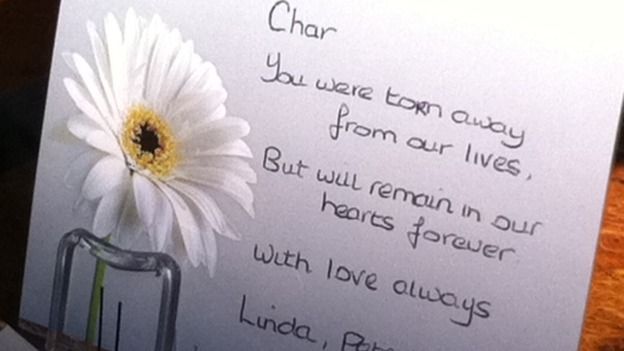 Char
You were torn away
from our lives,
But will remain in our
hearts forever
with love always
Linda,